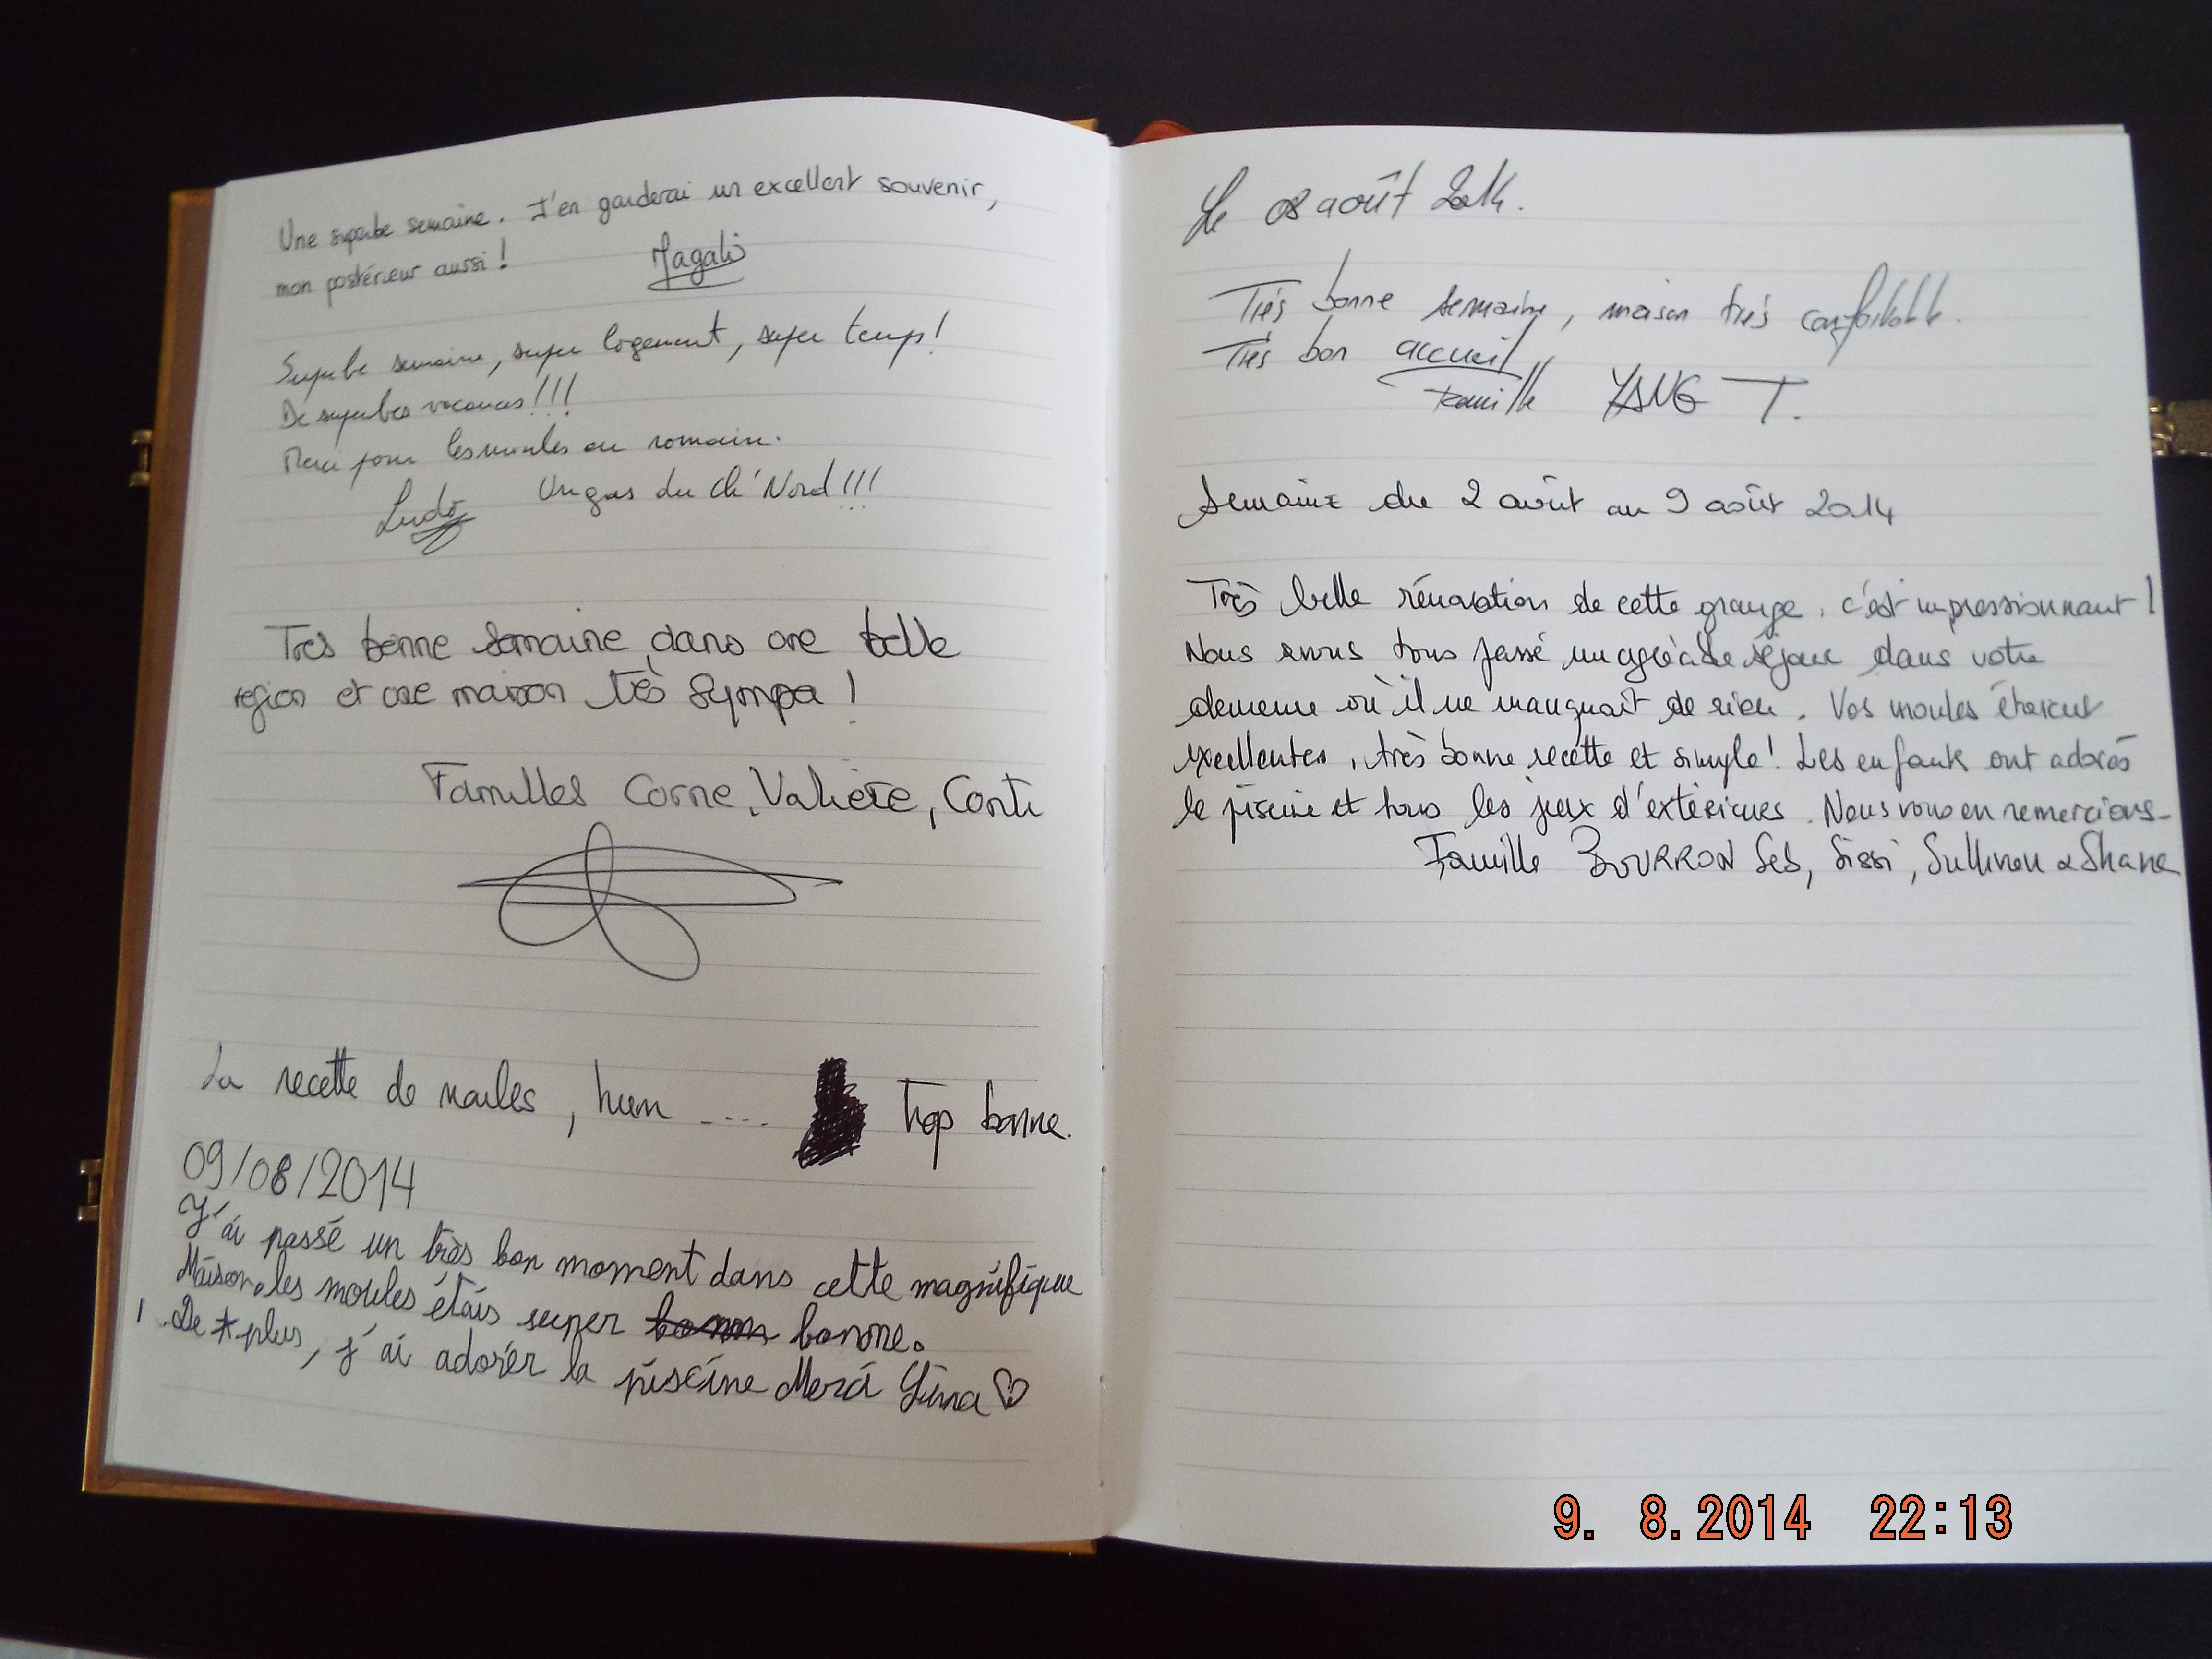 Une superbe semaine. J'en garderai un excellent souvenir,
mon postérieur aussi !
Magali
Superbe semaine, super logement, super temps !
De superbes vacances !!!
Merci pour les moules au romain.
Ludo Un gas du ch'Nord !!!
Tres bonne semaine dans une belle
region et une maison très sympa !
Familles Corne, Valière, Conti
La recette de moules, hum .... Trop bonne.
09/08/2014
J'ai passé un très bon moment dans cette magnifique
Maison. les moules étais super bonne.
De plus, j'ai adorér la piscine Merci Lina ♡
Le 08 août 2014.
Très bonne semaine, maison très confortable.
Très bon accueil
Famille YANG T.
Semaine du 2 août au 9 août 2014
Très belle rénovation de cette grange, c'est impressionnant !
Nous avons tous passé un agréable séjour dans votre
demeure où il ne manquait de rien. Vos moules étaient
excellentes, très bonne recette et simple ! Les enfants ont adorés
la piscine et tous les jeux d'extérieurs. Nous vous en remercions.
Famille BOURRON Seb, Sissi, Sullivan & Shane
9. 8.2014 22:13